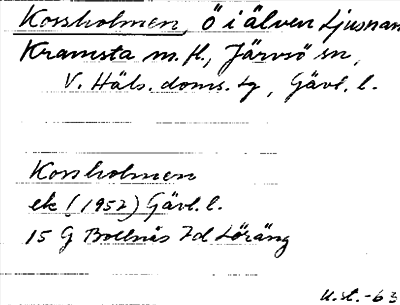 Korsholmen, Ö i älven Ljusnan
Kramsta m.fl., Järvsö sn,
V. Häls. doms. tg, Gävl. l.
Korsholmen
ek! (1952) Gävl. l.
15 G Bollnäs 7d Löräng
u.st.-63